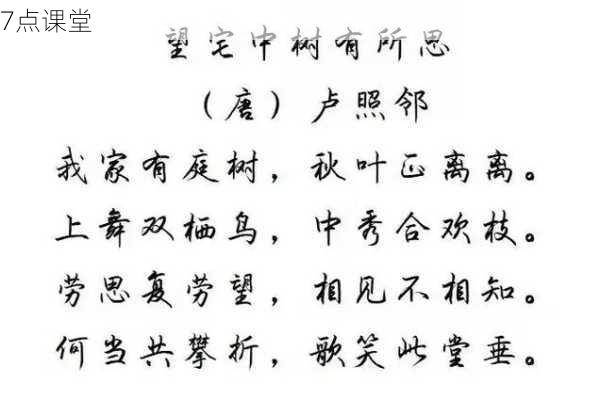 7点课堂
望宅中树有所思
（唐）卢照邻
我家有庭树，秋叶正离离。
上舞双栖鸟，中秀合欢枝。
劳思复劳望，相见不相知。
何当共攀折，歌笑此堂垂。